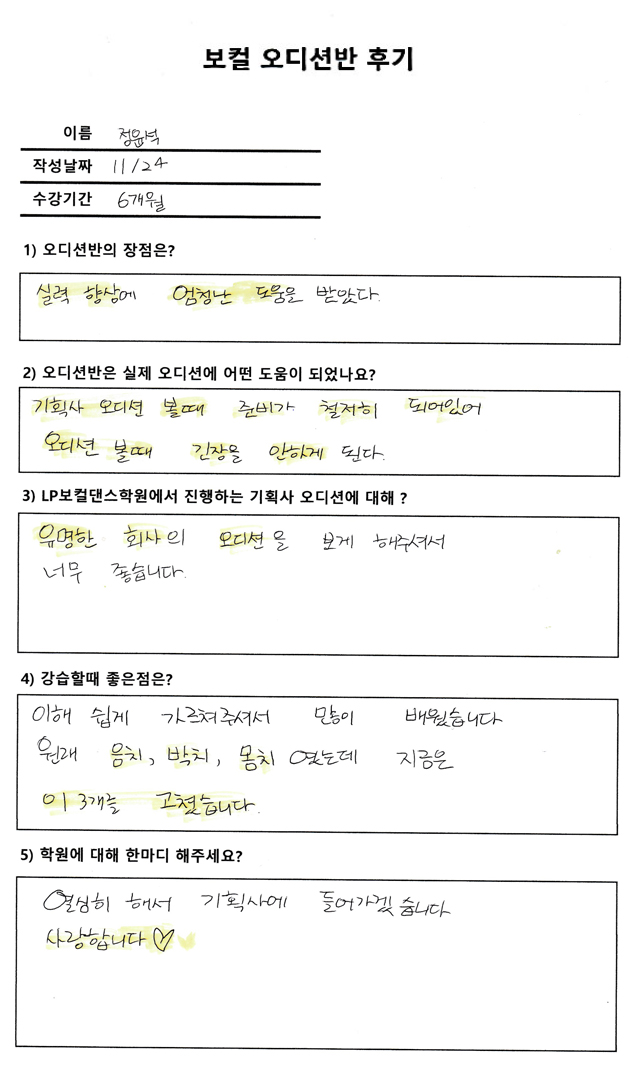 보컬 오디션반 후기
이름 정윤석
작성날짜 11/24
수강기간 6개월
1) 오디션반의 장점은?
실력 향상에 엄청난 도움을 받았다.
2) 오디션반은 실제 오디션에 어떤 도움이 되었나요?
기획사 오디션 볼때 준비가 철저히 되어있어
오디션 볼때 긴장을 안하게 된다.
3) LP보컬댄스학원에서 진행하는 기획사 오디션에 대해 ?
유명한 회사의 오디션을 보게 해주셔서
너무 좋습니다.
4) 강습할때 좋은점은?
이해 쉽게 가르쳐주셔서 많이 배웠습니다
원래 음치, 박치, 몸치 였는데 지금은
이 3개를 고쳤습니다.
5) 학원에 대해 한마디 해주세요?
열심히 해서 기획사에 들어가겠습니다
사랑합니다♡